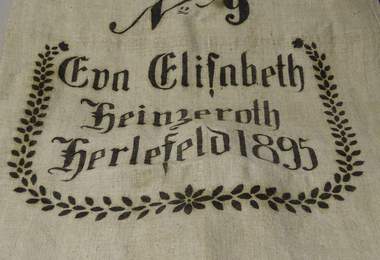 No 9
Eva Elisabeth
Heinzeroth
Herlefeld 1895